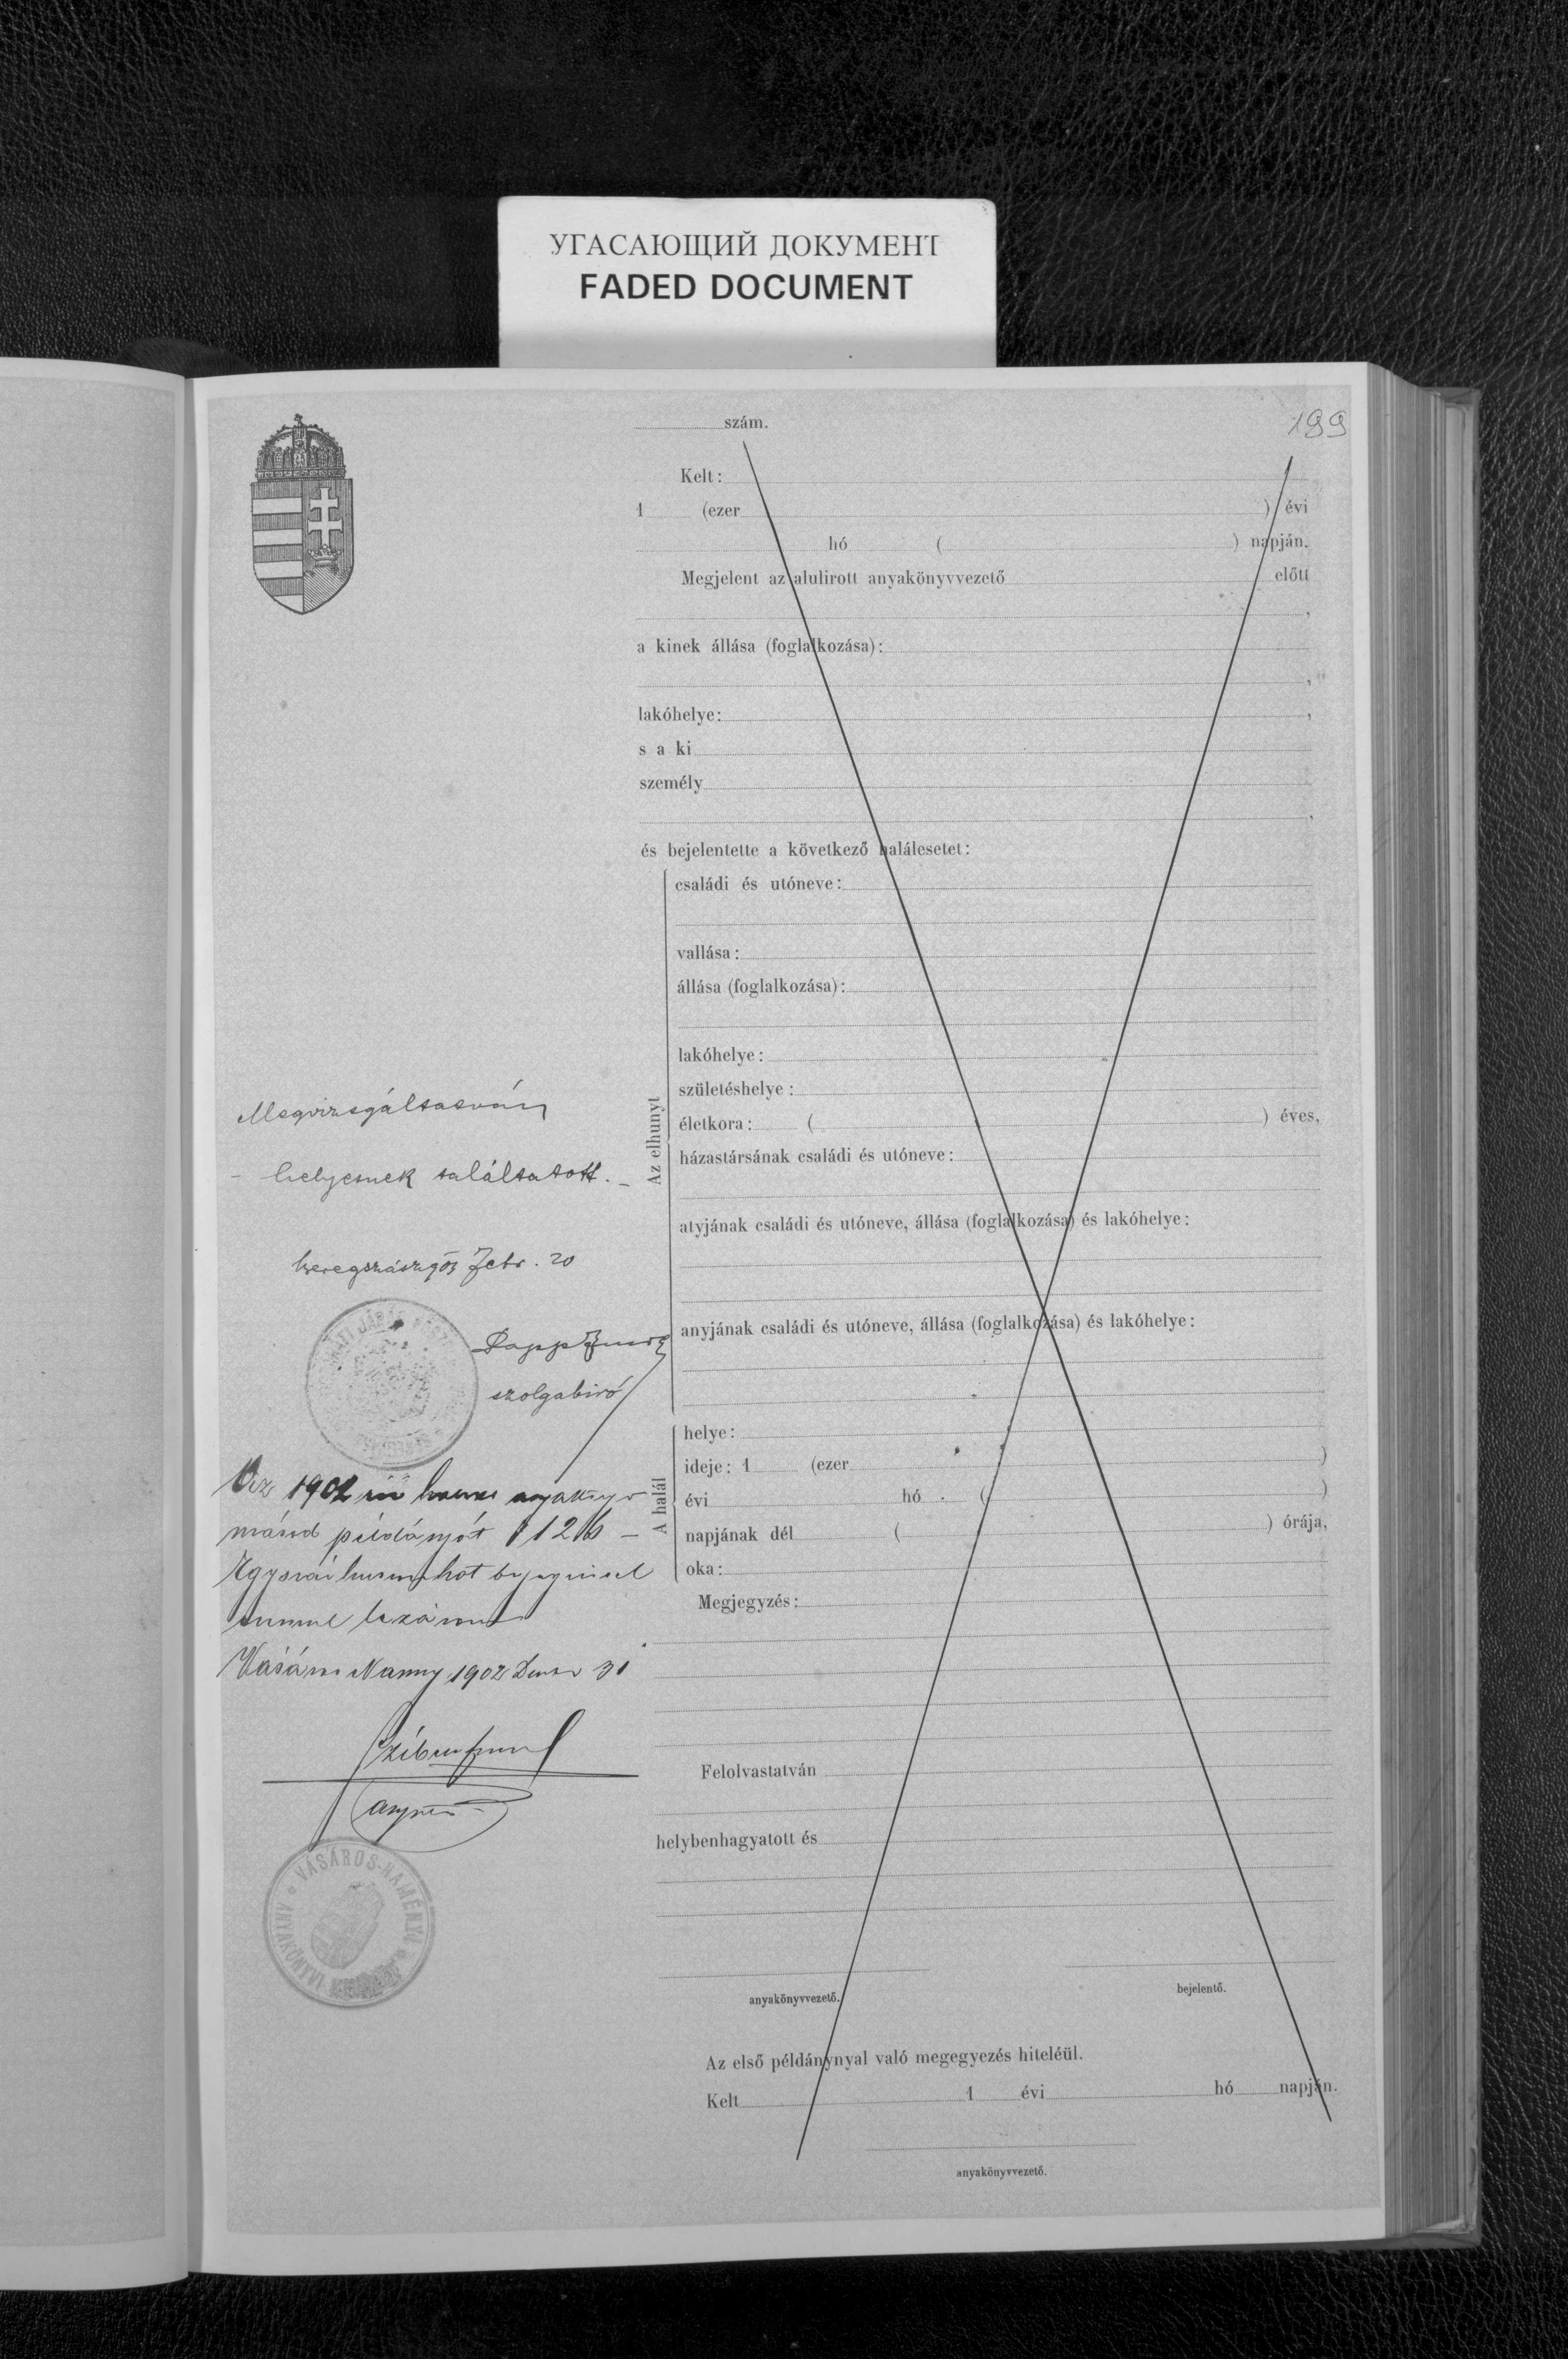 УГАСАЮЩИЙ ДОКУМЕНТ
FADED DOCUMENT
199
szám.
Kelt:
1 (ezer ) évi
hó ( ) napján.
Megjelent az alulirott anyakönyvvezető előtt
,
a kinek állása (foglalkozása):
,
lakóhelye: ,
s a ki
személy
,
és bejelentette a következő halálesetet:
Az elhunyt
családi és utóneve:
vallása:
állása (foglalkozása):
lakóhelye:
születéshelye:
életkora: ( ) éves,
házastársának családi és utóneve:
atyjának családi és utóneve, állása (foglalkozása) és lakóhelye:
anyjának családi és utóneve, állása (foglalkozása) és lakóhelye:
A halál
helye:
ideje: 1 (ezer )
évi hó ( )
napjának dél ( ) órája,
oka:
Megjegyzés:
Felolvastatván
helybenhagyatott és
anyakönyvvezető.
bejelentő.
Az első példánynyal való megegyezés hiteléül.
Kelt 1 évi hó napján.
anyakönyvvezető.
Megvizsgáltatván
- helyesnek találtatott. -
Beregszász 903 Febr. 20
Papp
szolgabiró
Az 1902
másod példányát 126 -
lezárom
1902 31
VÁSÁROS-NAMÉNYI